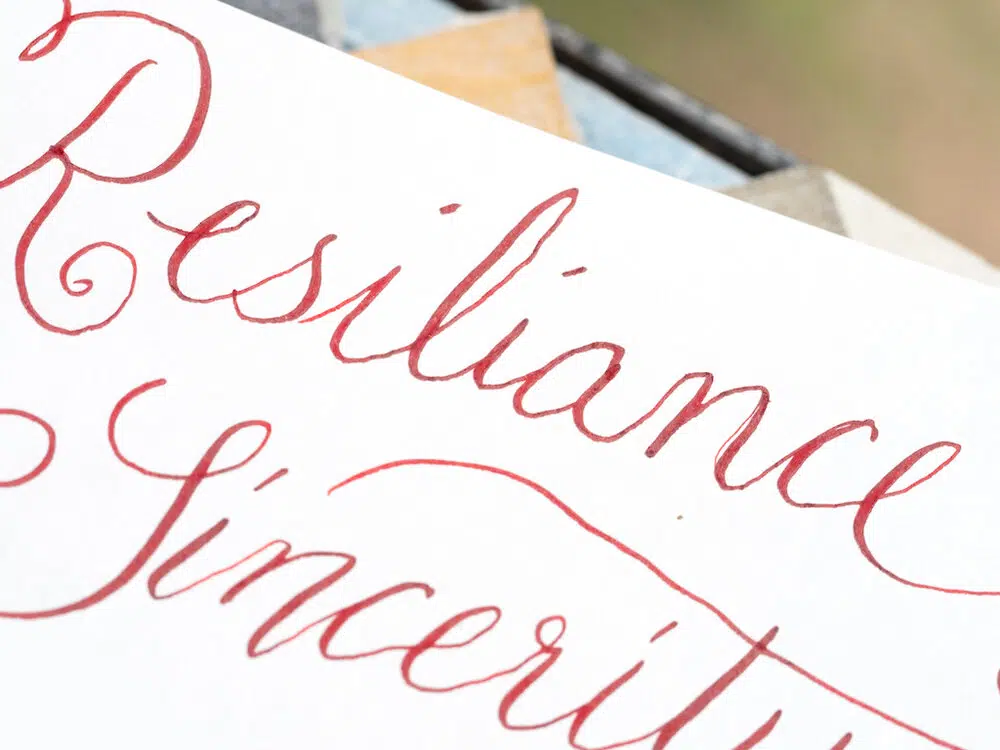 Resiliance
Sincerity